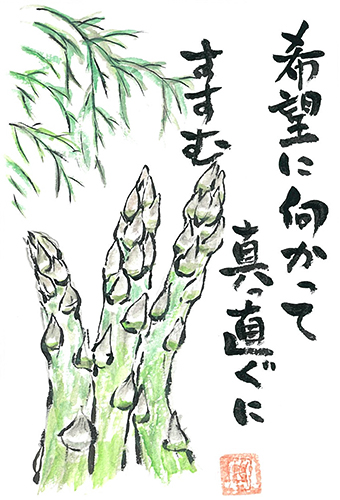 希望に向かって
真っ直ぐに
すすむ